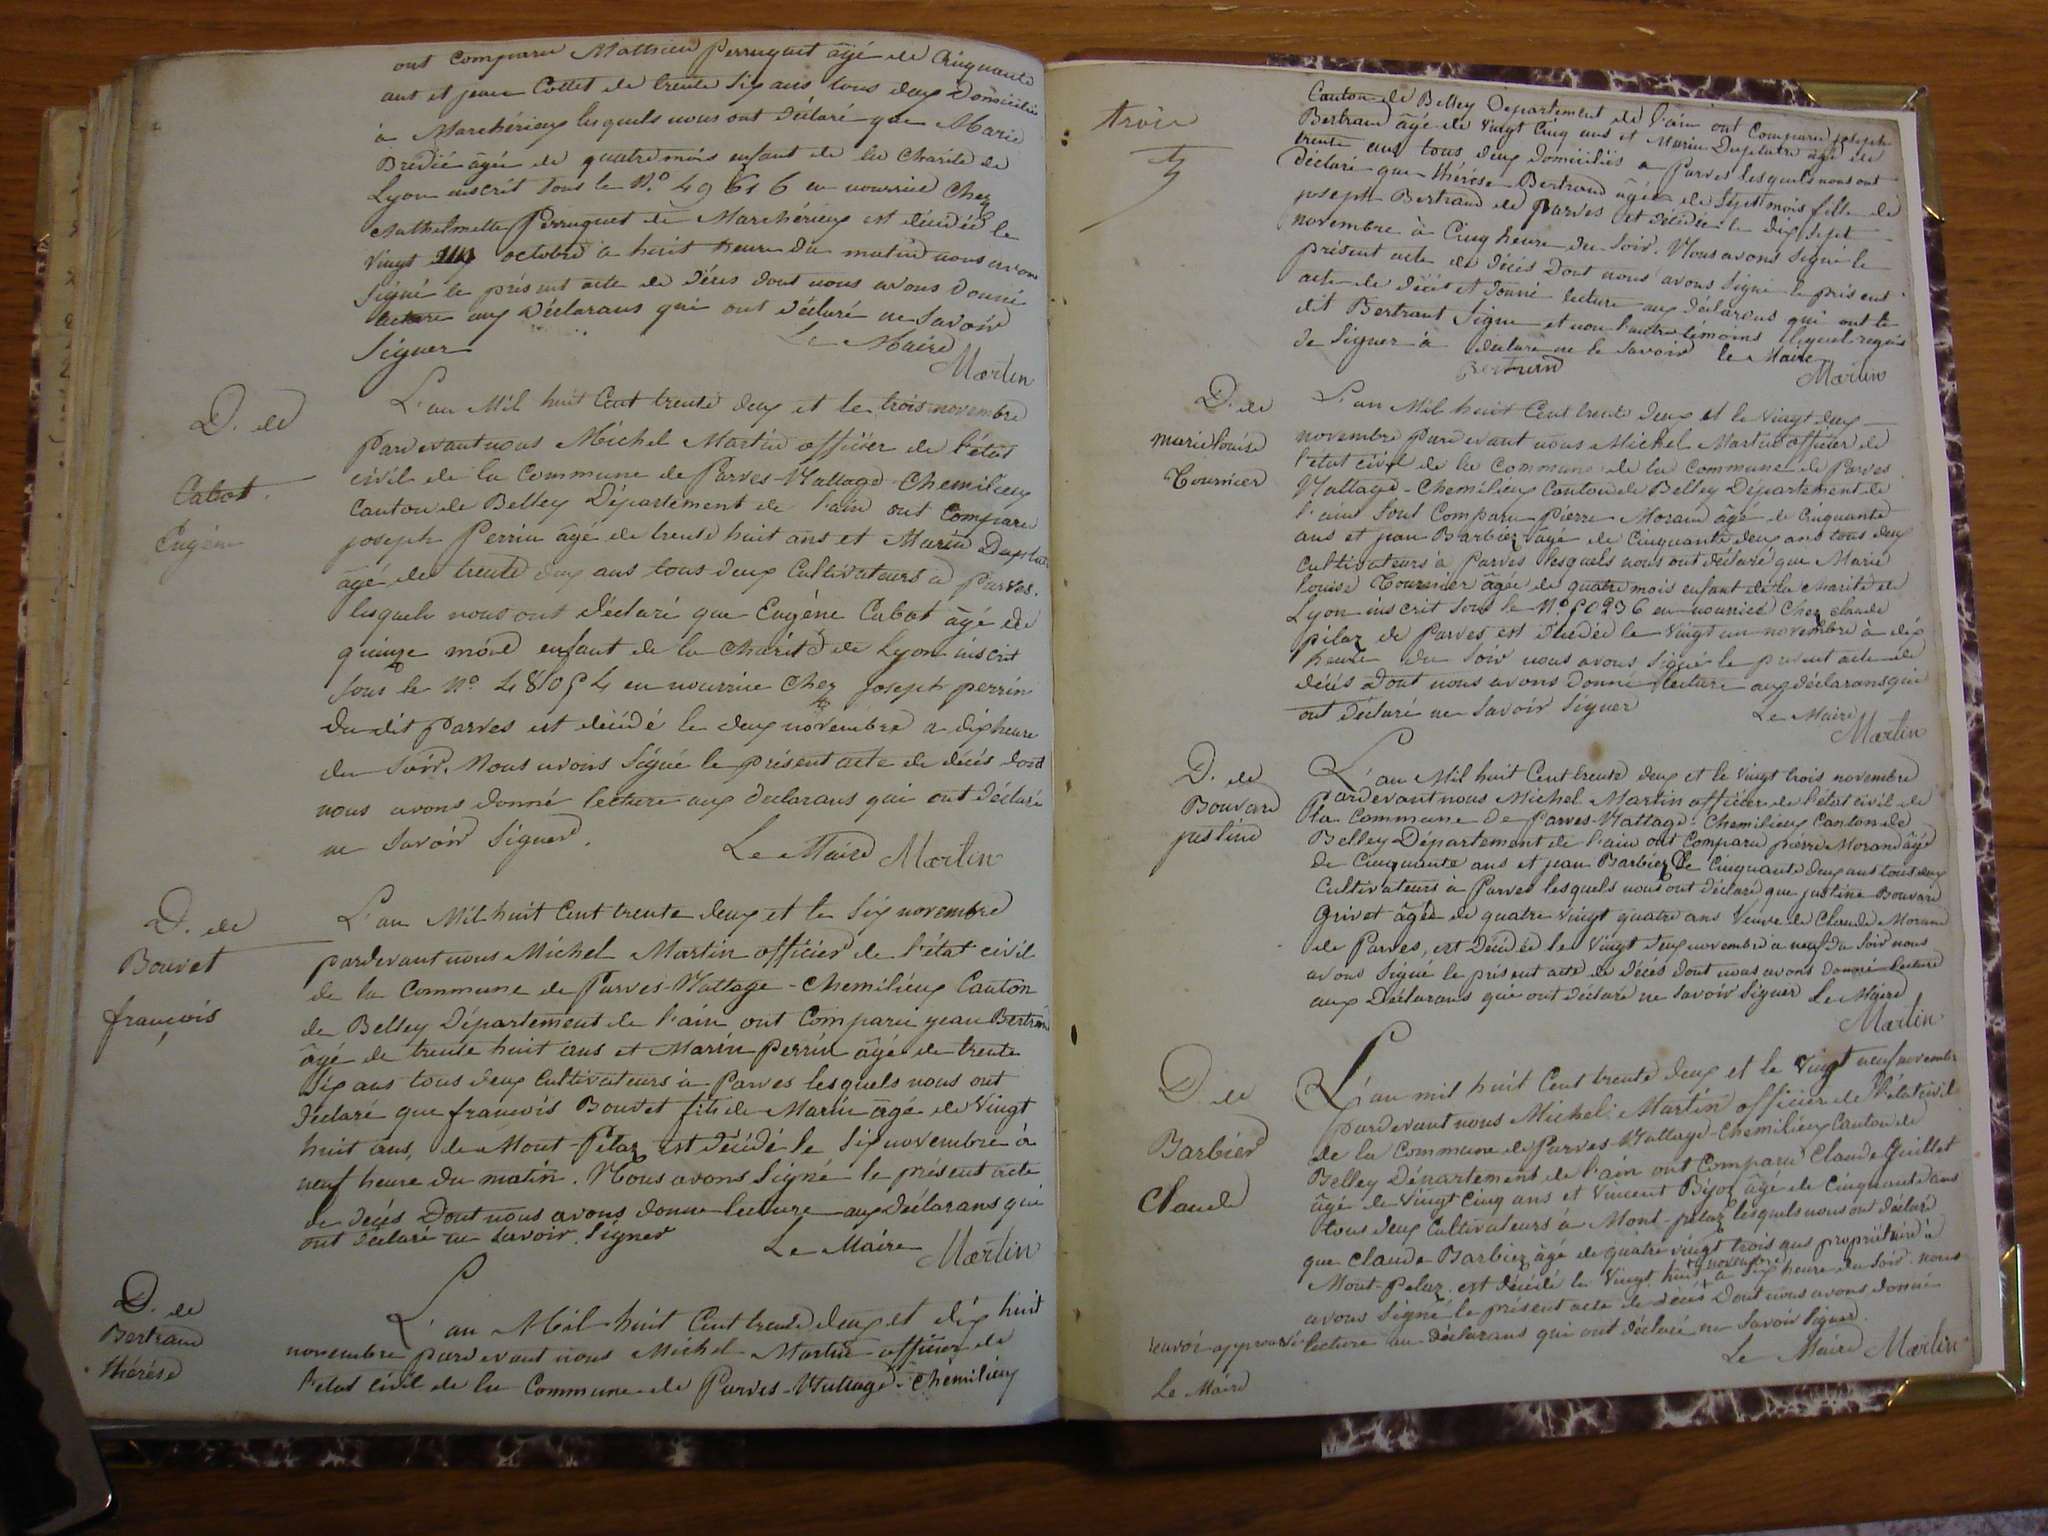 ont comparu Mathieu Perruquet âgé de Cinquante
ant et jean Collet de trente Six ans tous deux Domicilié
à Marchérieux lesquels nous ont déclaré que Marie
âgée de quatre mois enfant de la Charité de
Lyon inscrit sous le N.o 49616 en nourrice chez
Perruquet de Marchérieux est décédée le
vingt octobre a huit heure du matin nous avons
Signé le présent acte de décès dont nous avons donné
lecture aux Déclarans qui ont déclaré ne Savoir
Signer Le Maire
Martin
D. de
Cabot
Eugène
L'an Mil huit Cent trente deux et le trois novembre
pardevant nous Michel Martin officier de l'état
civil de la Commune de Parves-Nattage-Chemilieux
Canton de Belley Département de l'ain ont Comparu
joseph Perrin âgé de trente huit ans et Marin
âgé de trente deux ans tous deux Cultivateurs a Parves.
lesquels nous ont déclaré que Eugène Cabot âgé de
quinze mois enfant de la Charité de Lyon inscrit
sous le N.o 48054 en nourrice Chez joseph perrin
du dit Parves est décédé le deux novembre a dix heure
du Soir. Nous avons Signé le présent acte de décès dont
nous avons donné lecture aux declarans qui ont déclaré
ne Savoir Signer.
Le Maire Martin
D. de
Bouvet
françois
L'an Mil huit Cent trente deux et le Six novembre
pardevant nous Michel Martin officier de l'état civil
de la Commune de Parves-Nattage-Chemilieux Canton
de Belley Département de l'ain ont Comparu jean Bertrin
âgé de trente huit ans et Marin Perrin âgé de trente
Six ans tous deux Cultivateurs à Parves lesquels nous ont
déclaré que françois Bouvet fils de Marin âgé de Vingt
huit ans, de Mont-Pelaz est décédé le Six novembre à
neuf heure du matin. Nous avons Signé le présent acte
de Décès Dont nous avons donné lecture aux Déclarans qui
ont déclaré ne Savoir Signer Le Maire Martin
D. de
Bertrand
thérèse
L'an Mil huit Cent trente deux et dix huit
novembre pardevant nous Michel Martin officier de
l'état civil de la Commune de Parves-Nattage-Chémilieux
trois
Canton de Belley Departement de l'ain ont Comparu joseph
Bertrand âgé de vingt Cinq ans et Marin Duplatre âgé de
trente ans tous deux domiciliés a Parves lesquels nous ont
déclaré que thérèse Bertrand âgée de Sept mois fille de
joseph Bertrand de Parves est décédée le dix Sept
novembre à Cinq heure du Soir. Nous avons Signé le
présent acte de décès Dont nous avons Signé le présent
acte de décès et donné lecture aux déclarans qui ont le
dit Bertrant Signe et non l'autre témoins lequel requis
de Signer à déclaré ne le Savoir le Maire
Martin
D. de
marie louise
Tournier
L'an Mil huit Cent trente deux et le vingt deux
novembre pardevant nous Michel Martin officier de
l'état civil de la Commune de la Commune de Parves
Nattage-Chemilieux Canton de Belley Département de
l'ain Sont Comparu Pierre Morand âgé de Cinquante
ans et jean Barbier âgé de Cinquante deux ans tous deux
cultivateurs à Parves lesquels nous ont déclaré que Marie
louise Tournier âgée de quatre mois enfant de la Charité de
Lyon inscrit sous le N.o 50236 en nourrice Chez claude
pilaz de Parves est décédée le vingt un novembre à dix
heure du Soir nous avons Signé le présent acte de
décès Dont nous avons Donné lecture aux déclarans qui
ont déclaré ne Savoir Signer Le Maire
Martin
D. de
Bouvard
justine
L'an Mil huit Cent trente deux et le vingt trois novembre
Pardevant nous Michel Martin officier de l'état civil de
la Commune de Parves-Nattage-Chemilieux Canton de
Belley Département de l'ain ont Comparu pierre Morand âgé
de Cinquante ans et jean Barbiez de Cinquante deux ans tous deux
Cultivateurs à Parves lesquels nous ont déclaré que justine Bouvard
Grivet âgée de quatre vingt quatre ans Veuve de Claude Morand
de Parves, est Décédée le vingt deux novembre a neuf du Soir nous
avons Signé le présent acte de décès dont nous avons donné lecture
aux Déclarans qui ont déclaré ne Savoir Signer Le Maire
Martin
D. de
Barbier
Claude
L'an mil huit Cent trente deux et le vingt neuf novembre
pardevant nous Michel Martin officier de l'état civil
de la Commune de Parves-Nattage-Chemilieux Canton de
Belley Département de l'ain ont Comparu Claude Guillet
âgé de vingt Cinq ans et Vincent Bijoz âgé de Cinquante ans
tous deux Cultivateurs à Mont-pelaz lesquels nous ont déclaré
que Claude Barbiez âgé de quatre vingt trois ans propriétaire à
Mont-Pelaz est décédé le Vingt huit novembre a Six heure du Soir nous
avons Signé le présent acte de décès Dont nous avons donné
lecture au déclarans qui ont déclaré ne Savoir Signer.
Le Maire Martin
renvoi approuvé
Le Maire